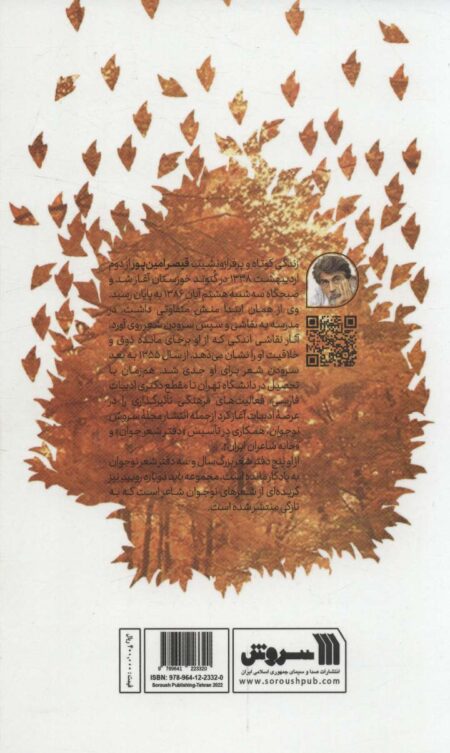 زندگی کوتاه و پرفرازونشیب قیصر امین‌پور از دوم
اردیبهشت ۱۳۳۸ در گتوند خوزستان آغاز شد و
صبحگاه سه‌شنبه هشتم آبان ۱۳۸۶ به پایان رسید.
وی از همان ابتدا منش متفاوتی داشت. در
مدرسه به نقاشی و سپس سرودن شعر روی آورد.
آثار نقاشی اندکی که از او برجای مانده ذوق و
خلاقیت او را نشان می‌دهد. از سال ۱۳۵۵ به بعد
سرودن شعر برای او جدی شد. هم‌زمان با
تحصیل در دانشگاه تهران تا مقطع دکتری ادبیات
فارسی، فعالیت‌های فرهنگی تأثیرگذاری را در
عرصهٔ ادبیات آغاز کرد از جمله انتشار مجلهٔ سروش
نوجوان، همکاری در تأسیس «دفتر شعر جوان» و
«خانه شاعران ایران».
از او پنج دفتر شعر بزرگ‌سال و سه دفتر شعر نوجوان
به یادگار مانده است. مجموعه باید دوباره رویید نیز
گزیده‌ای از شعرهای نوجوان شاعر است که به
تازگی منتشر شده است.
سروش
انتشارات صدا و سیمای جمهوری اسلامی ایران
www.soroushpub.com
9 789641 223320
ISBN: 978-964-12-2332-0
Soroush Publishing-Tehran 2022
قیمت: ۴۰۰,۰۰۰ ریال